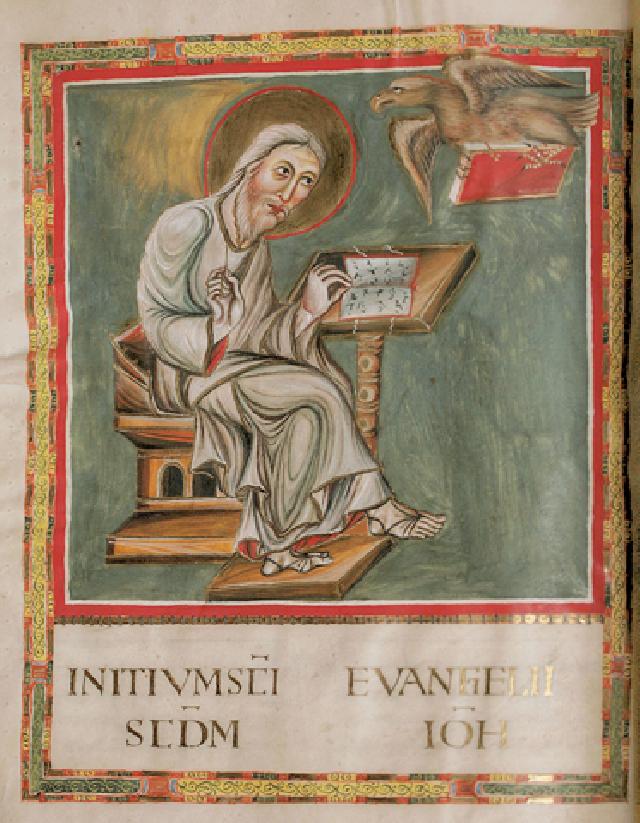 INITIVM SC̄I EVANGELII
SCD̄M IŌH